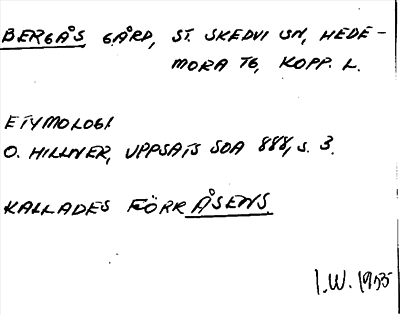 BERGÅS GÅRD, ST. SKEDVI SN, HEDE-
MORA TG, KOPP. L.
ETYMOLOGI
O. HILLNER, UPPSATS SOA 888, S. 3.
KALLADES FÖRR ÅSENS.
I.W. 1935